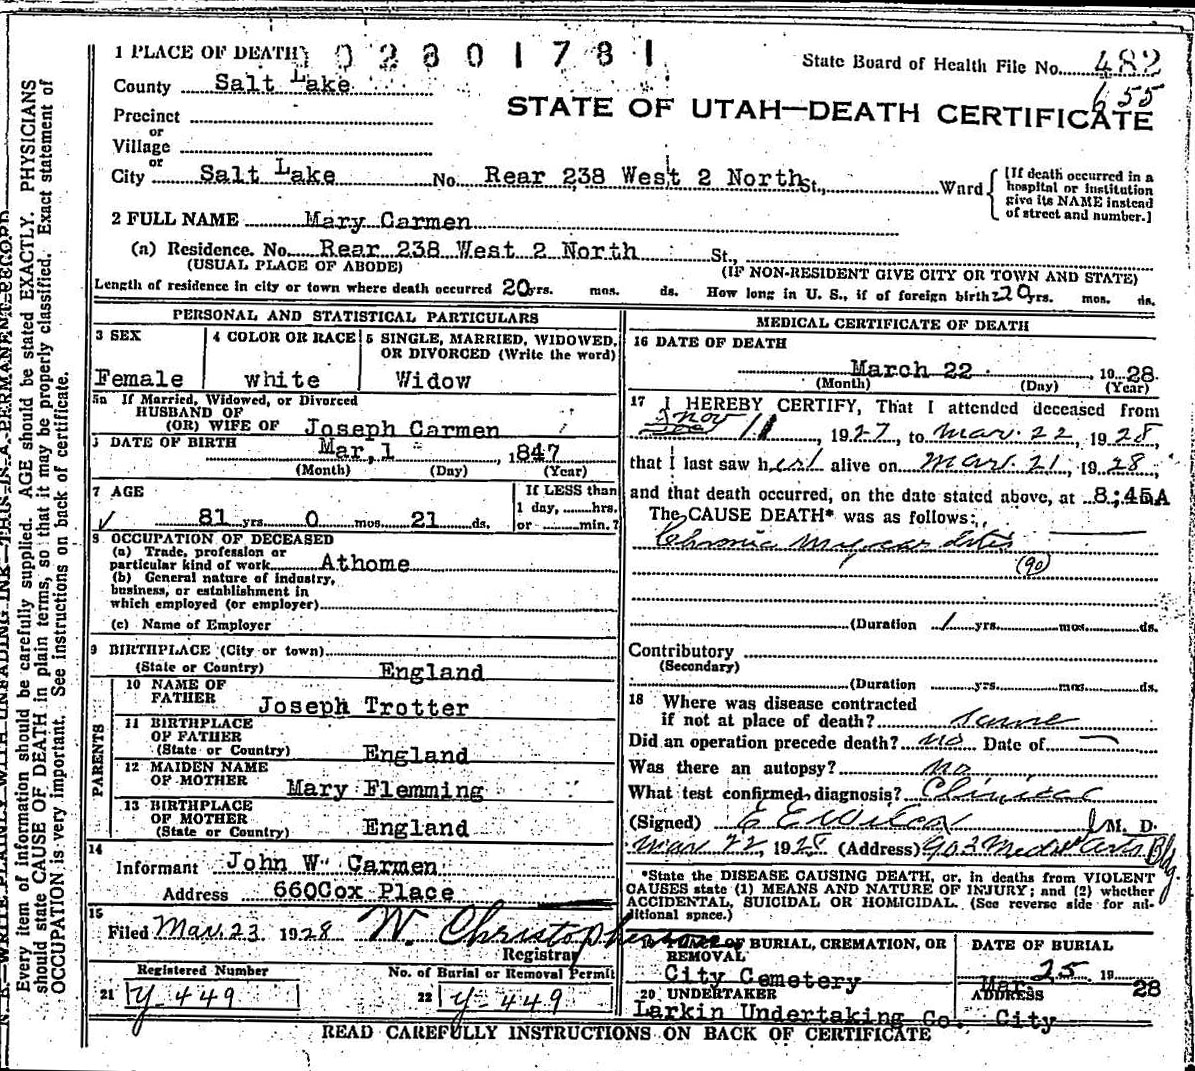 1 PLACE OF DEATH 02801781
State Board of Health File No. 482
655
County Salt Lake
STATE OF UTAH—DEATH CERTIFICATE
Precinct
or
Village
or
City Salt Lake No. Rear 238 West 2 North St., Ward
[If death occurred in a
hospital or institution
give its NAME instead
of street and number.]
2 FULL NAME Mary Carmen
(a) Residence. No. Rear 238 West 2 North St.,
(USUAL PLACE OF ABODE) (IF NON-RESIDENT GIVE CITY OR TOWN AND STATE)
Length of residence in city or town where death occurred 20 yrs. mos. ds. How long in U. S., if of foreign birth? 20 yrs. mos. ds.
PERSONAL AND STATISTICAL PARTICULARS
3 SEX
Female
4 COLOR OR RACE
white
5 SINGLE, MARRIED, WIDOWED,
OR DIVORCED (Write the word)
Widow
5a If Married, Widowed, or Divorced
HUSBAND OF
(OR) WIFE OF Joseph Carmen
DATE OF BIRTH Mar, 1 1847
(Month) (Day) (Year)
7 AGE
81 yrs. 0 mos. 21 ds.
If LESS than
1 day, hrs.
or min.?
8 OCCUPATION OF DECEASED
(a) Trade, profession or
particular kind of work Athome
(b) General nature of industry,
business, or establishment in
which employed (or employer)
(c) Name of Employer
9 BIRTHPLACE (City or town)
(State or Country) England
PARENTS
10 NAME OF
FATHER Joseph Trotter
11 BIRTHPLACE
OF FATHER
(State or Country) England
12 MAIDEN NAME
OF MOTHER Mary Flemming
13 BIRTHPLACE
OF MOTHER
(State or Country) England
14
Informant John W Carmen
Address 660Cox Place
15
Filed Mar. 23 1928 W. Christopherson
Registrar
Registered Number
21 Y-449
No. of Burial or Removal Permit
22 Y-449
MEDICAL CERTIFICATE OF DEATH
16 DATE OF DEATH
March 22 1928
(Month) (Day) (Year)
17 I HEREBY CERTIFY, That I attended deceased from
Nov 11, 1927, to Mar. 22, 1928,
that I last saw her alive on Mar. 21, 1928
and that death occurred, on the date stated above, at 8:45A
The CAUSE DEATH* was as follows:
Chronic Myocarditis
(90)
(Duration 1 yrs. mos. ds.
Contributory
(Secondary)
(Duration yrs. mos. ds.
18 Where was disease contracted
if not at place of death? same
Did an operation precede death? no Date of
Was there an autopsy? no
What test confirmed diagnosis? Clinical
(Signed) E E Wilcox M. D.
Mar 22, 1928 (Address) 903 Medical Arts Bldg.
*State the DISEASE CAUSING DEATH, or, in deaths from VIOLENT
CAUSES state (1) MEANS AND NATURE OF INJURY; and (2) whether
ACCIDENTAL, SUICIDAL OR HOMICIDAL. (See reverse side for ad-
ditional space.)
19 PLACE OF BURIAL, CREMATION, OR
REMOVAL
City Cemetery
DATE OF BURIAL
Mar. 25 1928
20 UNDERTAKER
Larkin Undertaking Co.
ADDRESS
City
READ CAREFULLY INSTRUCTIONS ON BACK OF CERTIFICATE
N. B.—WRITE PLAINLY WITH UNFADING INK—THIS IS A PERMANENT RECORD
Every item of information should be carefully supplied. AGE should be stated EXACTLY. PHYSICIANS
should state CAUSE OF DEATH in plain terms, so that it may be properly classified. Exact statement of
OCCUPATION is very important. See instructions on back of certificate.